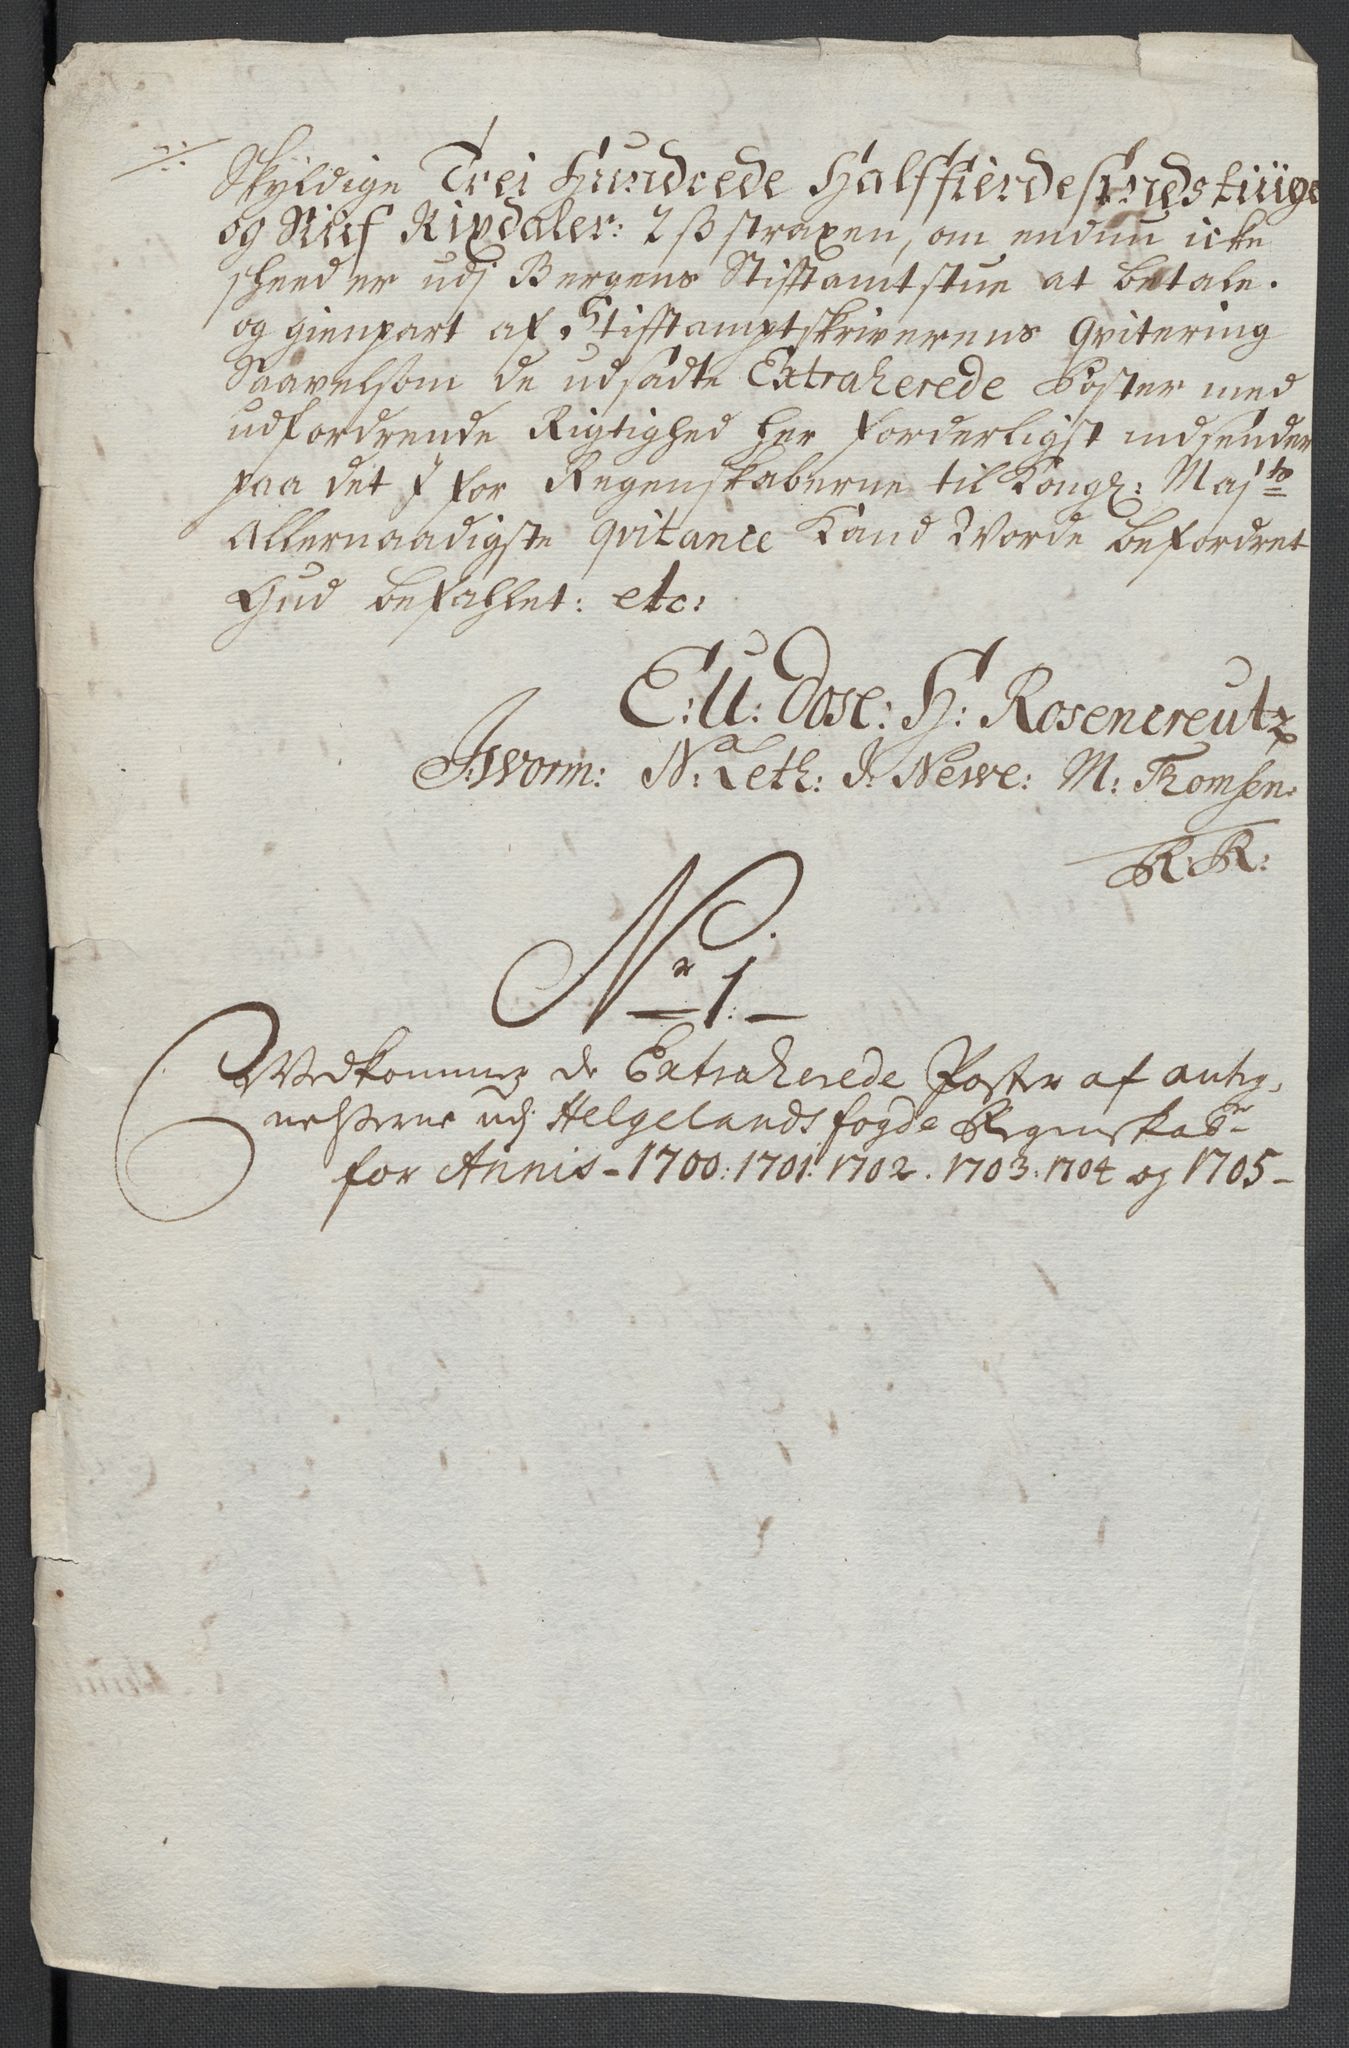 Skyldige Trei Hundrede Halffierdesindstiuge
og Niif Rixdaler: 2 ß straxen, om endnu icke
skeed er udj Bergens Stifftamtstue at betale.
og gienpart af Stifftamptskriverens Qvitering
Saavelsom de udsadte Extraherede Poster med
udfordrende Rigtighed her forderligst indsender
paa det J for Regenskaberne til Kongl: Majts
Allernaadigste qvitance Kand Vorde befordret
Gud befahlet: etc:
E: U: Dose: H: Rosencreutz
J: Worm: N: Leth: J: Newe: M: Thomsen:
R: R:
Nr 1.
Vedkommer de Extraherede Poster af anteg-
nelserne udj Helgelands fogde Regenskaber
for Annis - 1700: 1701: 1702. 1703: 1704 og 1705 -